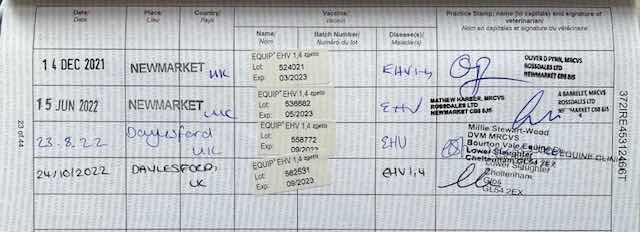 Date
Place
Lieu
Country
Pays
Vaccine/
Vaccin
Name/
Nom
Batch Number/
Numéro du lot
Disease(s)
Maladie(s)
Practice Stamp; name (in capitals) and signature of
veterinarian/
Nom en capitales et signature du vétérinaire
14 DEC 2021 NEWMARKET UK
EQUIP EHV 1,4 zoetis
Lot: 524021
Exp: 03/2023
EHV1,4
OLIVER D PYNN, MRCVS
ROSSDALES LTD
NEWMARKET CB8 8JS
15 JUN 2022 NEWMARKET UK
EQUIP EHV 1,4 zoetis
Lot: 536682
Exp: 05/2023
EHV
ROSSDALES LTD
NEWMARKET CB8 8JS
MRCVS
ROSSDALES LTD
NEWMARKET CB8 8JS
23.8.22 Daylesford UK
EQUIP EHV 1,4 zoetis
Lot: 558772
09/2022
EHV
Millie Stewart-Wood
DVM MRCVS
Bourton Vale Equine
Lower Slaughter
Cheltenham GL54 2EX
24/10/2022 DAYLESFORD, UK
EQUIP EHV 1,4 zoetis
Lot: 562531
Exp: 09/2023
EHV1,4
EQUINE CLINIC
Lower Slaughter
Cheltenham
Glos
GL54 2EX
23 of 44
372IRE45312466T